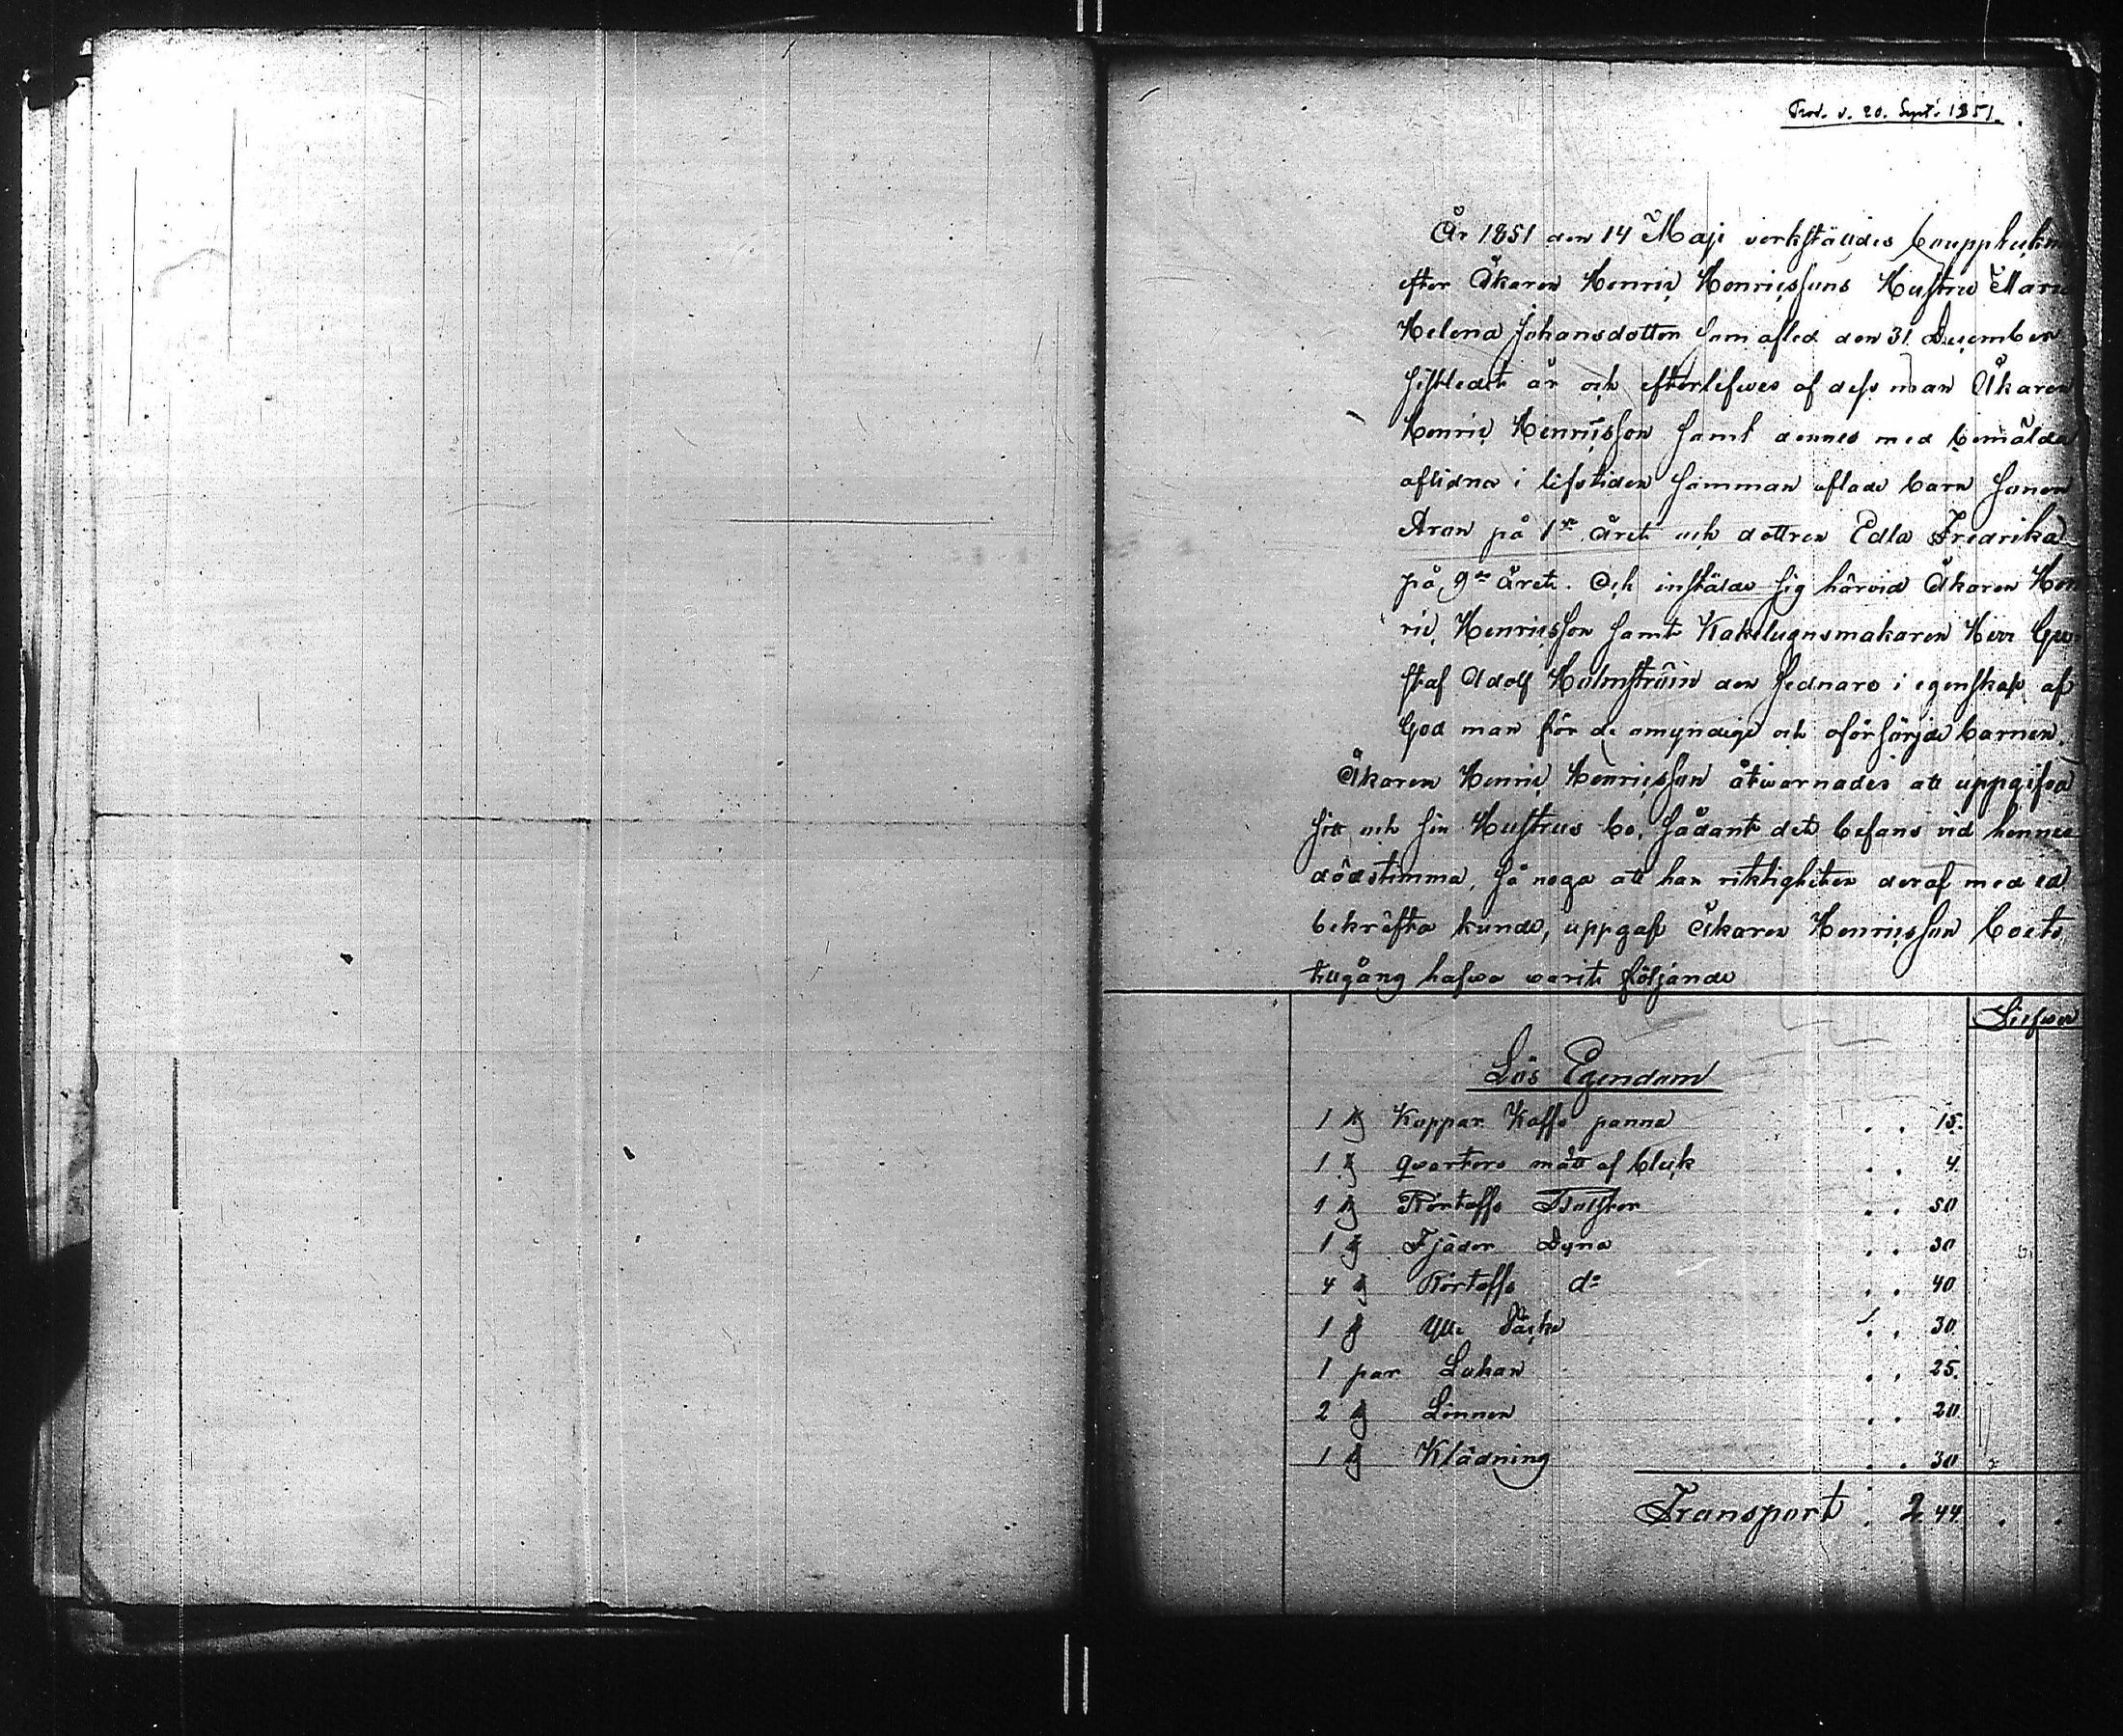 Prod. d. 20. Sept. 1851.
År 1851 den 14 Maji verkställdes bouppteckn
efter Åkaren Henric Henricssons Hustru Maria
Helena Johansdotter som afled den 31 December
sistledit år och efterlefwes af dess man Åkaren
Henric Henricsson samt dennes med bemälda
aflidna i lifstiden samman aflade barn sonen
Aron på 1sta året och dottren Edla Fredrika
på 9de året. Och instälde sig härvid Åkaren Hen
ric Henricsson samt Kakelugnsmakaren Herr Gu
staf Adolf Holmström den sednare i egenskap af
God man för de omyndige och oförsörjde barnen.
Åkaren Henric Henricsson åtwarnades att uppgifva
sitt och sin Hustrus bo, sådant det befans vid hennes
dödstimma, så noga att han riktigheten deraf med ed
bekräfta kunde, uppgaf Åkaren Henricsson boets
tillgång hafwa warit följande
Silfwer
Lös Egendom
1 st Koppar Kaffe panna . . 15.
1 st qvarters mått af bleck . . 4.
1 st Börtaffs Bolster . . 50
1 st Fjäder Dyna . . 30
4 st Börtaffs do . . 40
1 st Ylle Täcke . . 30
1 par Lakan . . 25.
2 st Linnen . . 20
1 st Klädning . . 30
Transport . 2 44 . .